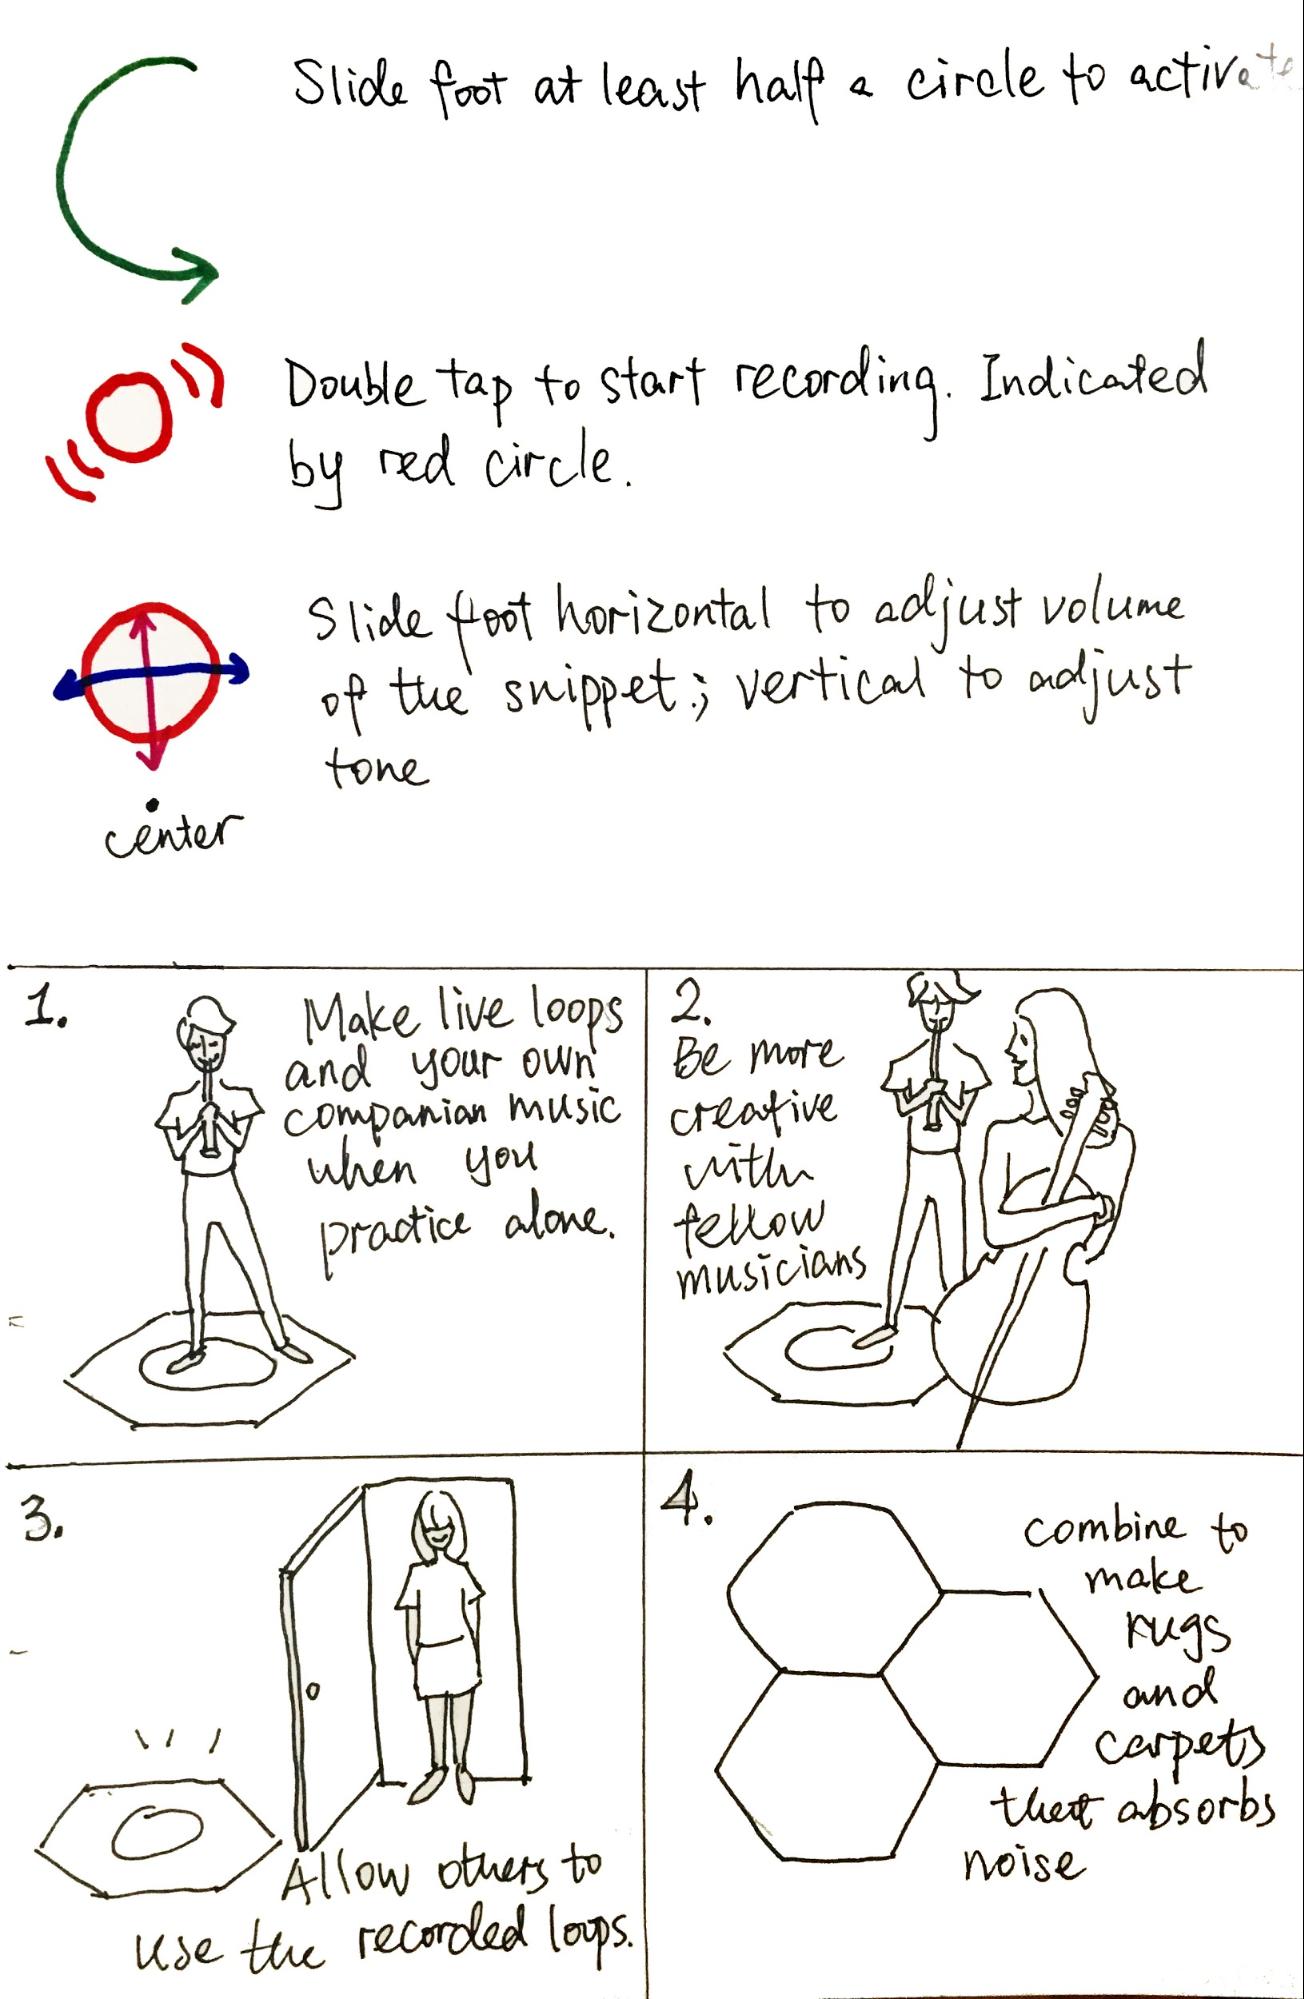 Slide foot at least half a circle to activate
Double tap to start recording. Indicated
by red circle.
Slide foot horizontal to adjust volume
of the snippet; vertical to adjust
tone
center
1.
Make live loops
and your own
companian music
when you
practice alone.
2.
Be more
creative
with
fellow
musicians
3.
Allow others to
use the recorded loops.
4.
combine to
make
rugs
and
carpets
that absorbs
noise